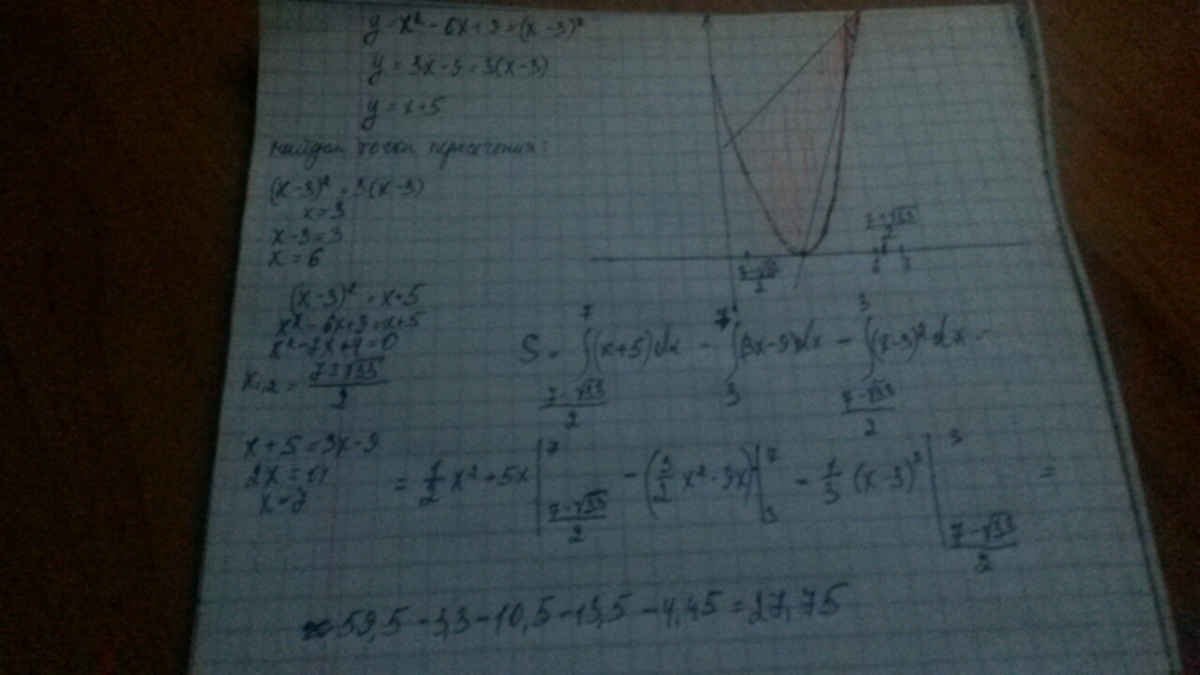 y = x² - 6x + 9 = (x - 3)²
y = 3x - 9 = 3(x - 3)
y = x + 5
найдем точки пересечения:
(x - 3)² = 3(x - 3)
x = 3
x - 3 = 3
x = 6
(x - 3)² = x + 5
x² - 6x + 9 = x + 5
x² - 7x + 4 = 0
x₁,₂ = (7 ± √33)/2
x + 5 = 3x - 9
2x = 14
x = 7
(7 - √33)/2
(7 + √33)/2
6 7
S = ∫_{(7 - √33)/2}^{7} (x + 5) dx - ∫_{3}^{7} (3x - 9) dx - ∫_{(7 - √33)/2}^{3} (x - 3)² dx =
= 1/2 x² + 5x |_{(7 - √33)/2}^{7} - (3/2 x² - 9x) |_{3}^{7} - 1/3 (x - 3)³ |_{(7 - √33)/2}^{3} =
59,5 - 3,3 - 10,5 - 13,5 - 4,45 = 27,75